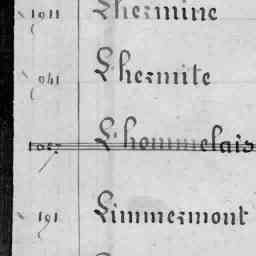 1911 Lhermine
941 Lhermite
1057 L'hommelais
191 Limmermont